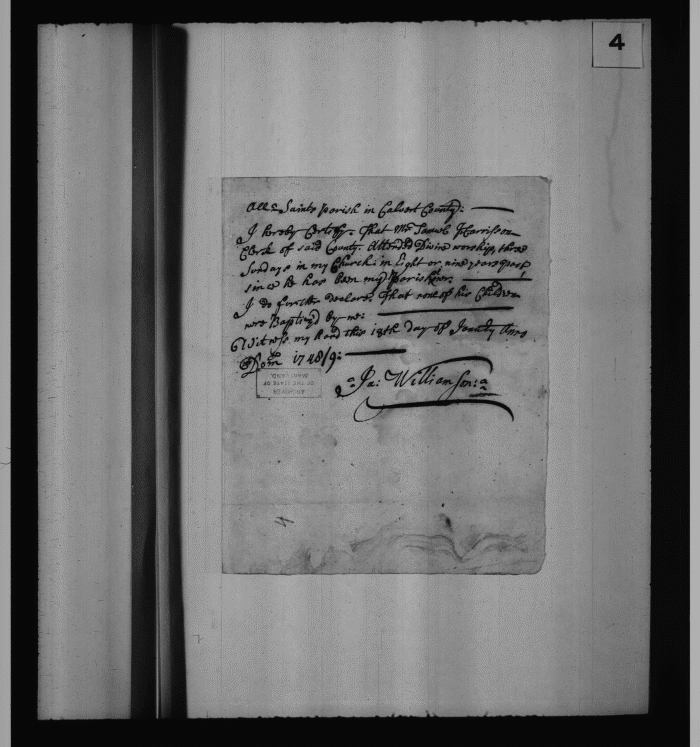 4
All Saints Parish in Calvert County:
I hereby Certify. That Mr Samuel Harrison
Clerk of said County. Attended Divine worship, three
Sundays in my Church: in Eight or, nine years past
since he has been my Parishoner:
I do further Declare. That none of his Children
were Baptized by me:
Witness my hand this 18th day of Janry Anno
Dom 1748/9:
Ja: Williamson:
ARCHIVES
OF THE STATE OF
MARYLAND